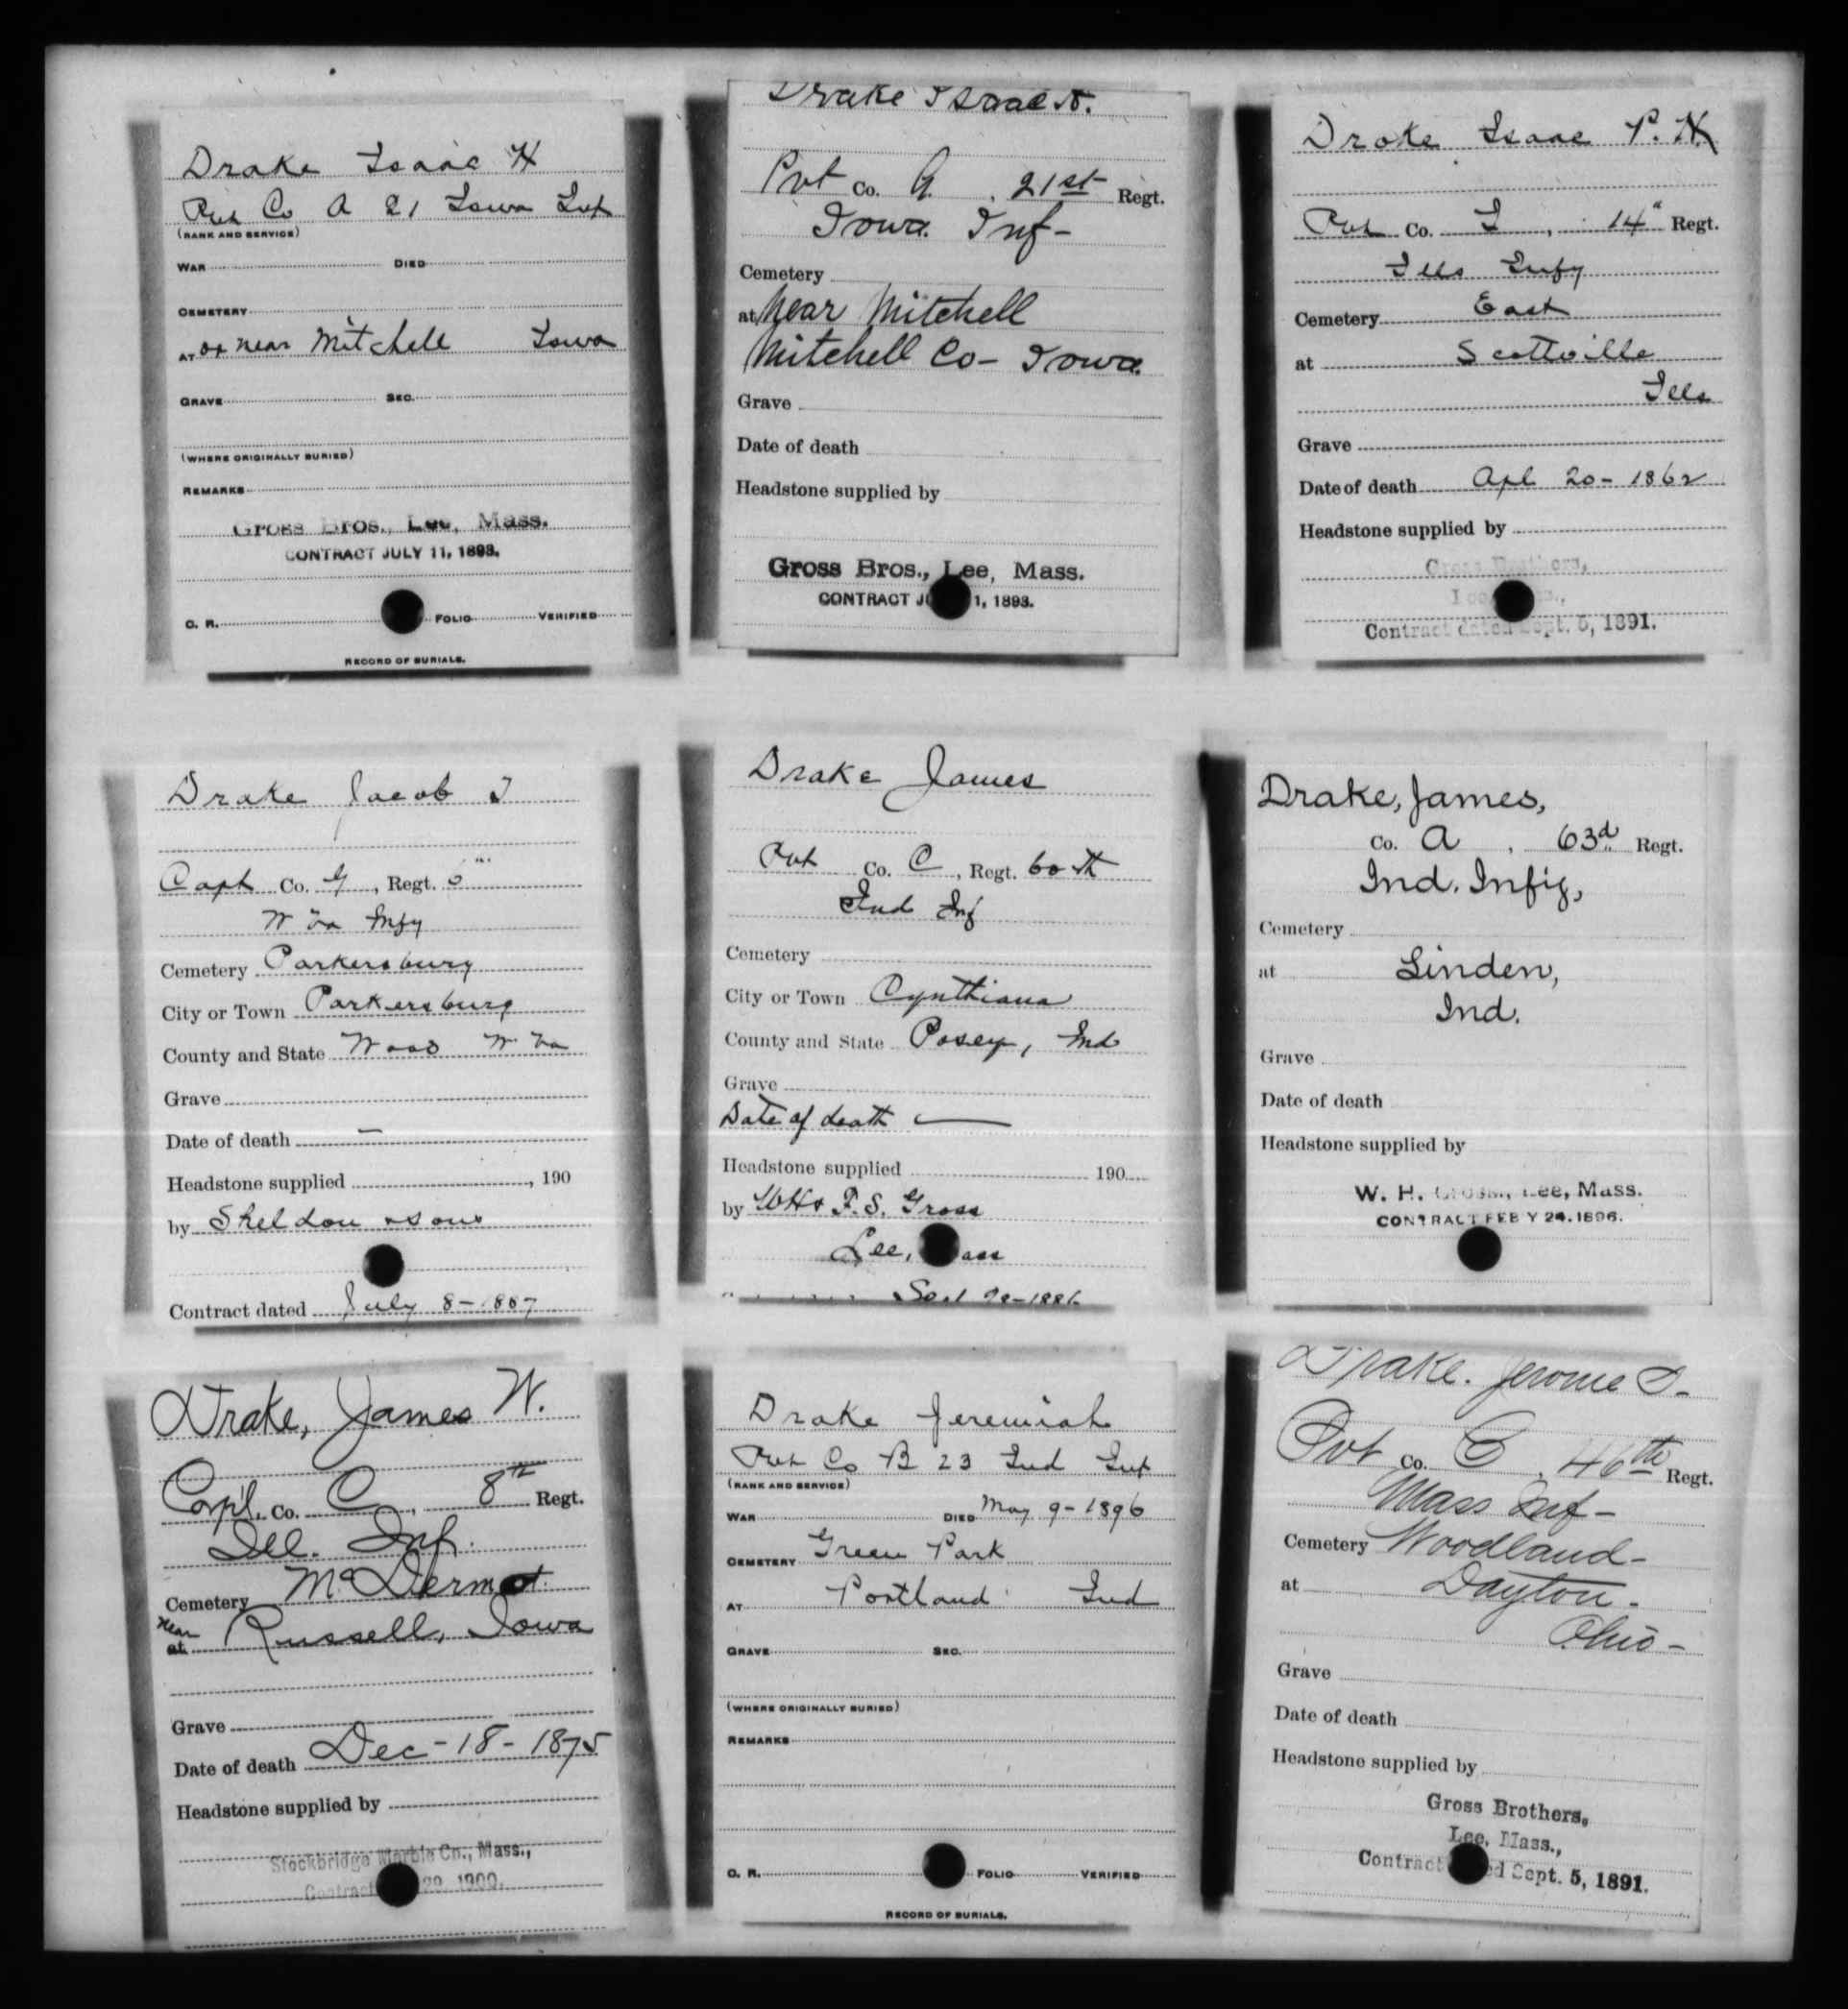 Drake Isaac H
Pvt Co A 21 Iowa Inf
(RANK AND SERVICE)
WAR DIED
CEMETERY
AT or near Mitchell Iowa
GRAVE SEC.
(WHERE ORIGINALLY BURIED)
REMARKS
Gross Bros., Lee, Mass.
CONTRACT JULY 11, 1893.
O. R. FOLIO VERIFIED
RECORD OF BURIALS.
Drake Isaac N.
Pvt Co. A. , 21st Regt.
Iowa. Inf-
Cemetery
at Near Mitchell
Mitchell Co- Iowa.
Grave
Date of death
Headstone supplied by
Gross Bros., Lee, Mass.
CONTRACT 1, 1893.
Drake Isaac P. N
Pvt Co. I , 14" Regt.
Ills Infy
Cemetery East
at Scottville
Ills
Grave
Date of death Apl 20-1862
Headstone supplied by
Gross Brothers,
Contract dated Sept. 5, 1891.
Drake Jacob I
Capt Co. G , Regt. 6"
W Va Infy
Cemetery Parkersburg
City or Town Parkersburg
County and State Wood W Va
Grave
Date of death —
Headstone supplied , 190
by Sheldon & Sons
Contract dated July 8-1887
Drake James
Pvt Co. C , Regt. 60th
Ind Inf
Cemetery
City or Town Cynthiana
County and State Posey, Ind
Grave
Date of death —
Headstone supplied 190
by W H & F. S. Gross
Lee, Mass
Drake, James,
Co. A , 63d. Regt.
Ind. Infty,
Cemetery
at Linden,
Ind.
Grave
Date of death
Headstone supplied by
W. H. Gross, Lee, Mass.
CONTRACT FEB'Y 24, 1896.
Drake, James W.
Corp'l. Co. C , 8th Regt.
Ill. Inf.
Cemetery McDermot
near at Russell, Iowa
Grave
Date of death Dec-18-1875
Headstone supplied by
Stockbridge Marble Co., Mass.,
Contract 1900.
Drake Jeremiah
Pvt Co B 23 Ind Inf
(RANK AND SERVICE)
WAR DIED May 9-1896
CEMETERY Green Park
AT Portland Ind
GRAVE SEC.
(WHERE ORIGINALLY BURIED)
REMARKS
O. R. FOLIO VERIFIED
RECORD OF BURIALS.
Drake. Jerome D-
Pvt Co. C , 46th Regt.
Mass Inf-
Cemetery Woodland-
at Dayton-
Ohio-
Grave
Date of death
Headstone supplied by
Gross Brothers,
Lee, Mass.,
Contract Sept. 5, 1891.